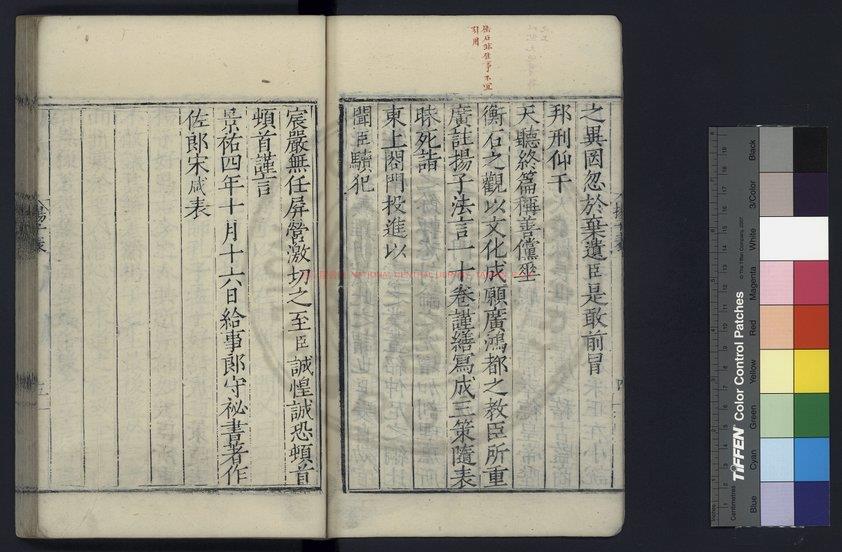 之異固忽於棄遺臣是敢前冒
邦刑仰干
天聽終篇稱善儻坐
衡石之觀以文化成願廣鴻都之教臣所重
廣註揚子法言一十卷謹繕寫成三策隨表
昧死詣
東上閤門投進以
聞臣驥犯
宸嚴無任屏營激切之至臣誠惶誠恐頓首
頓首謹言
景祐四年十月十六日給事郎守祕書著作
佐郎宋咸表
NATIONAL CENTRAL LIBRARY
TIFFEN Color Control Patches
© The Tiffen Company, 2007
Centimetres
Blue
Cyan
Green
Yellow
Red
Magenta
White
3/Color
Black